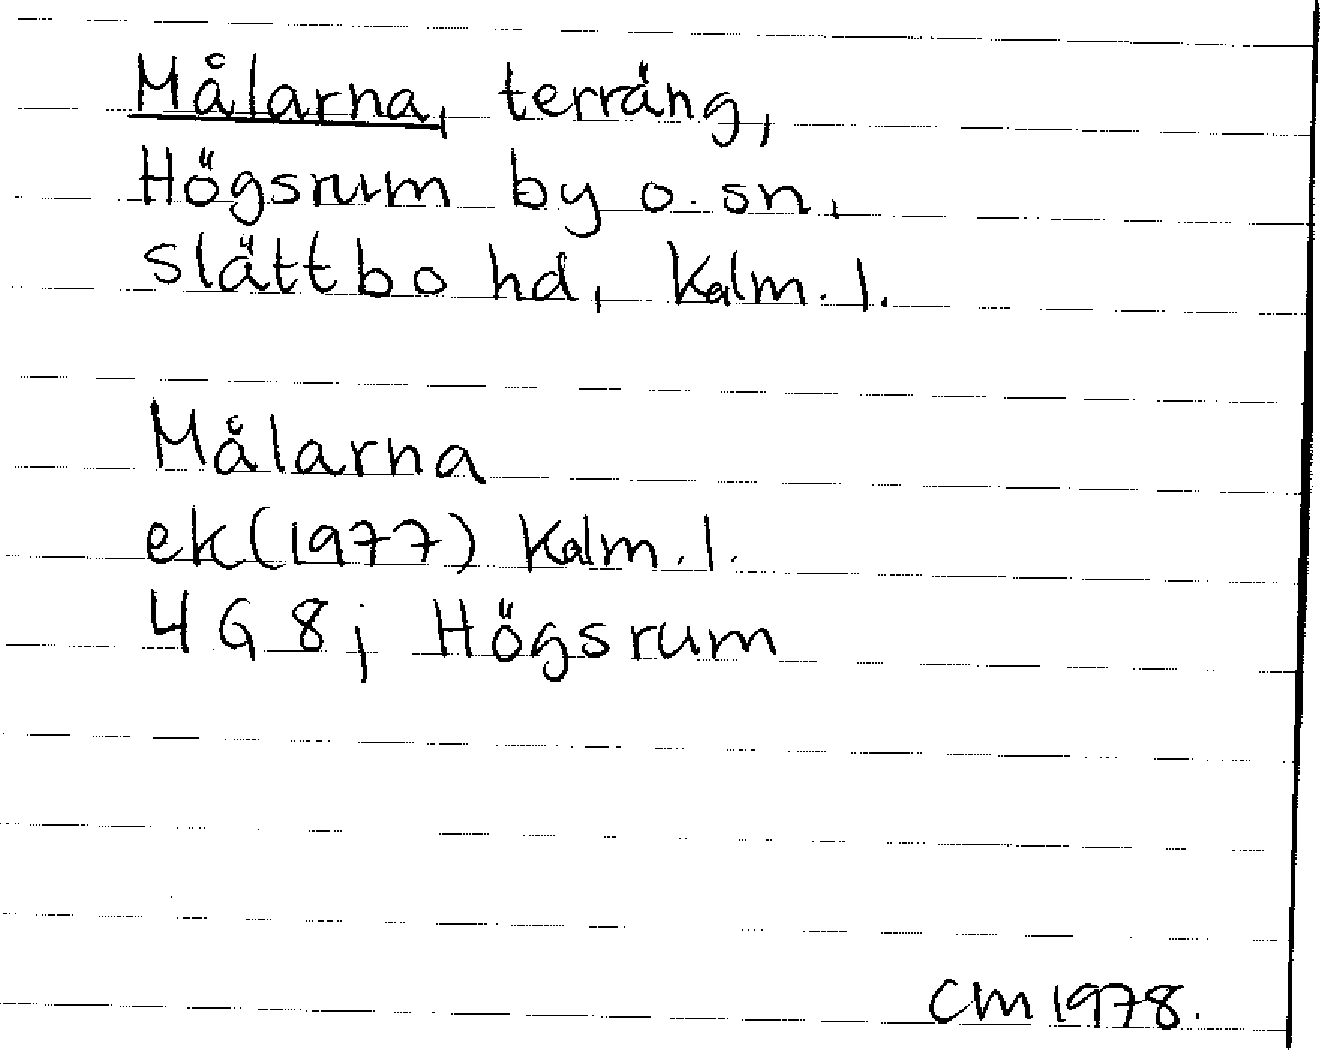 Målarna, terräng,
Högsrum by o. sn,
slättbo hd, Kalm. l.
Målarna
ek (1977) Kalm. l.
4 G 8 j Högsrum
CM 1978.